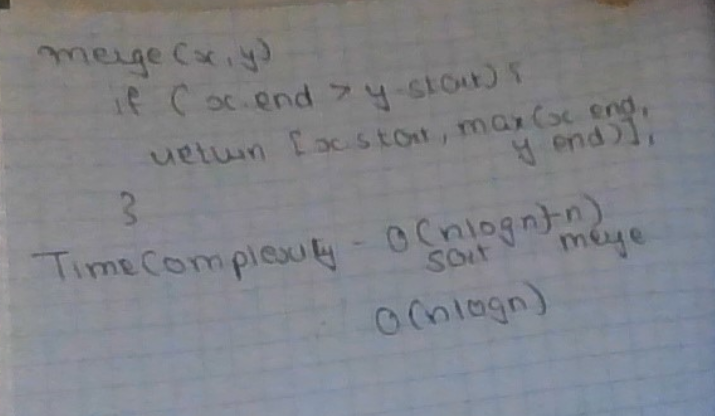 merge(x,y)
if (x.end > y.start) {
return [x.start, max(x.end,
y.end)];
}
Time Complexity - O(nlogn + n)
sort merge
O(nlogn)